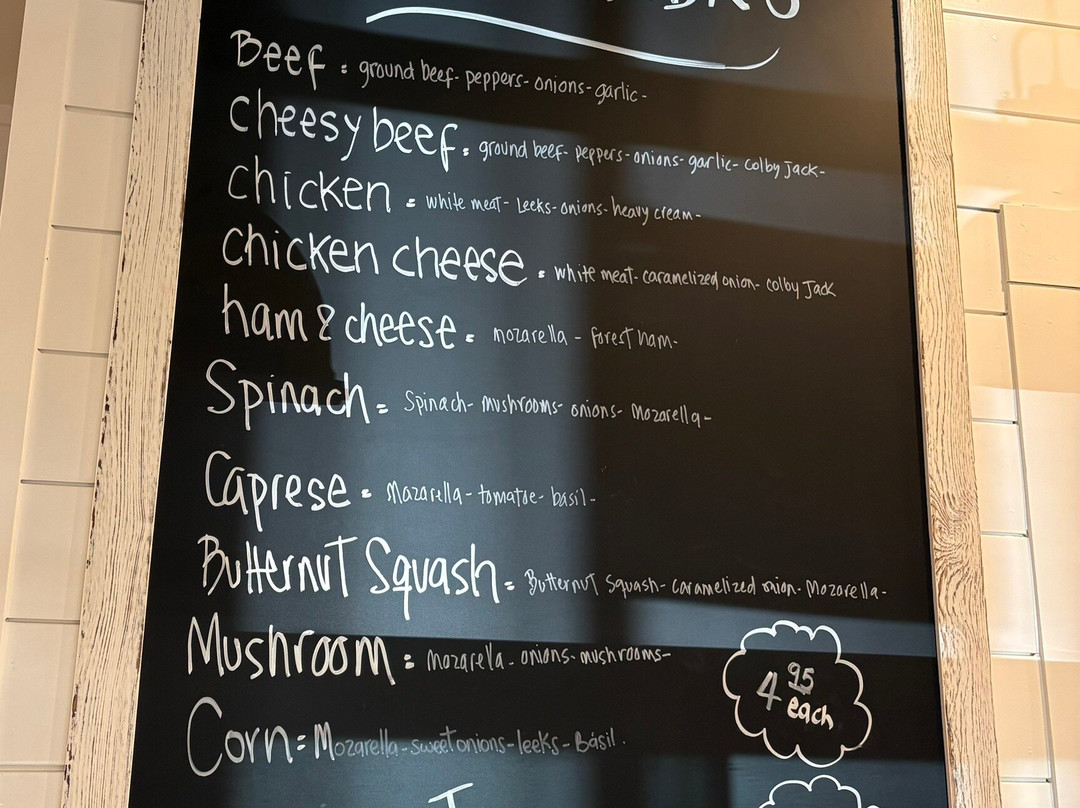 Beef : ground beef- peppers- onions- garlic-
cheesy beef : ground beef- peppers- onions- garlic- colby Jack-
chicken : white meat- Leeks- onions- heavy cream-
chicken cheese : white meat- caramelized onion- colby Jack
ham & cheese : mozarella - forest ham-
Spinach = Spinach- mushrooms- onions- Mozarella-
Caprese = Mazarella- tomatoe- basil-
Butternut Squash = Butternut Squash- caramelized onion- Mozarella-
Mushroom : mozarela- onions- mushrooms-
4 95
each
Corn = Mozarella- sweet onions- leeks- Basil.